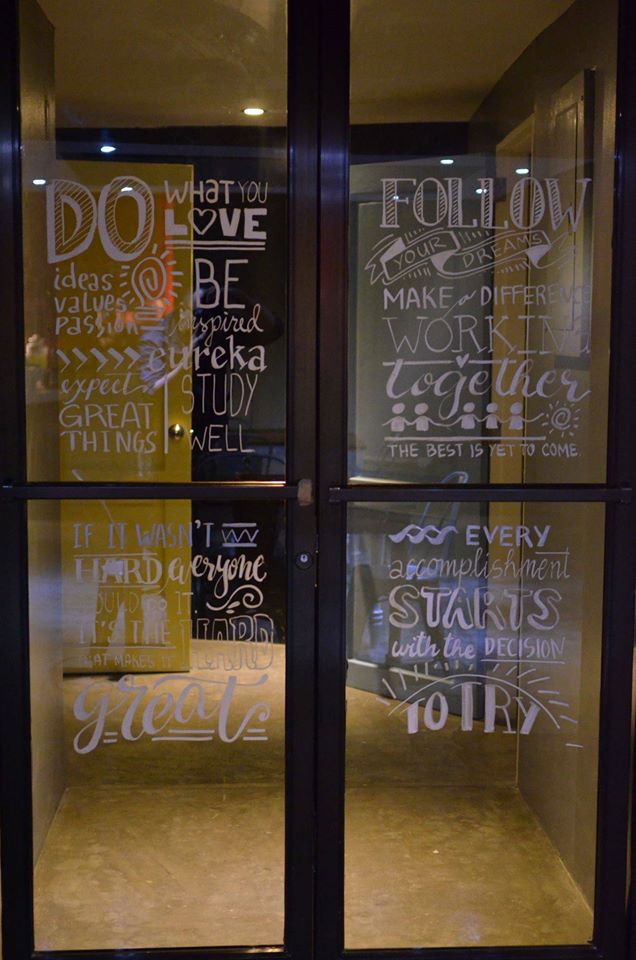 DO WHAT YOU
LOVE
ideas
values
passion
BE
inspired
eureka
expect
GREAT
THINGS
STUDY
WELL
FOLLOW
YOUR DREAMS
MAKE a DIFFERENCE
WORKING
together
THE BEST IS YET TO COME
IF IT WASN'T
HARD everyone
WOULD DO IT
IT'S THE HARD
THAT MAKES IT
great
EVERY
accomplishment
STARTS
with the DECISION
TO TRY